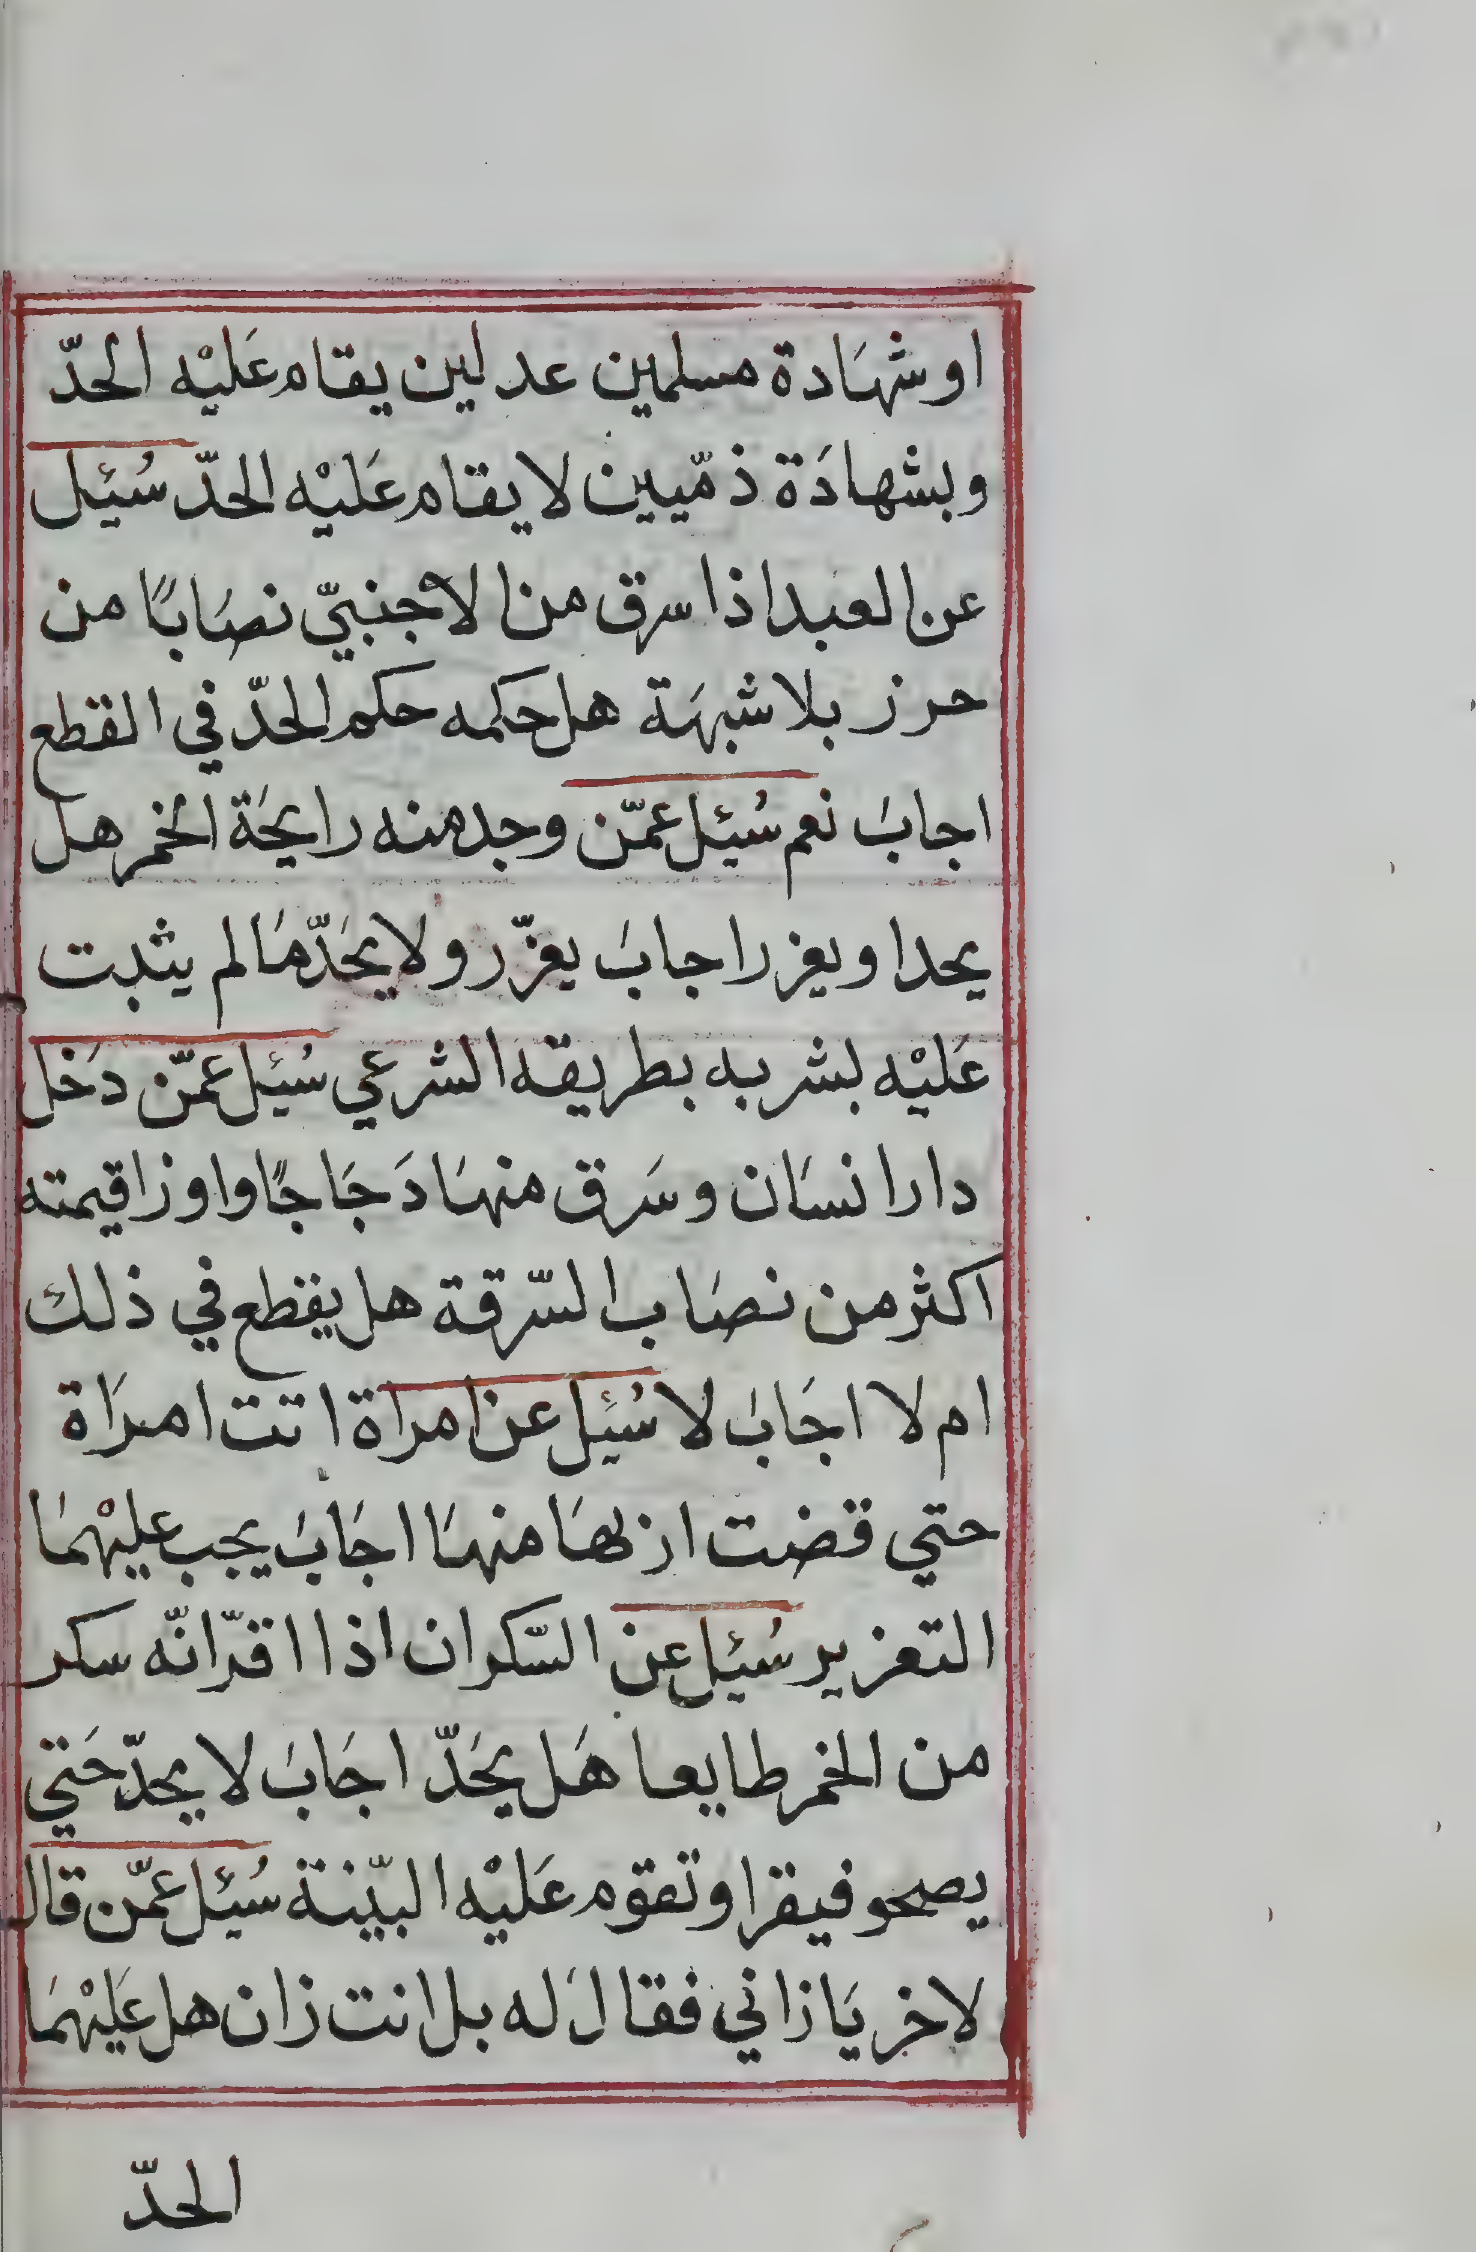 او شهَادة مسلمين عدلين يقام عَليْه الحدّ
وبشهادَة ذمّيين لا يقام عَليْه الحدّ سُئِل
عن العبد اذا سرق من الاجنبيّ نصَابًا من
حرز بلا شبهَة هل حكمه حكم الحدّ في القطع
اجابَ نعم سُئِل عمّن وجد منه رايحَة الخمر هل
يحد او يعزر اجابَ يعزّر ولا يحَدّ مَا لم يثبت
عَليْه بشربه بطريقه الشرعي سُئِل عمّن دَخل
دار انسَان وسَرق منهَا دَجَاجًا واوزا قيمته
اكثر من نصَاب السّرقة هل يقطع في ذلك
ام لا اجَابَ لا سُئِل عن امراة اتت امرَاة
حتي قضت اربهَا منهَا اجَابَ يجب عليْهمَا
التعزير سُئِل عن السّكران اذا اقرّ انّه سكر
من الخمر طايعا هَل يحَدّ اجَابَ لا يحدّ حَتي
يصحو فيقر او تقوم عَليْه البيّنة سُئِل عمّن قال
لاخر يَا زاني فقال له بل انت زان هل عَليْهمَا
الحدّ